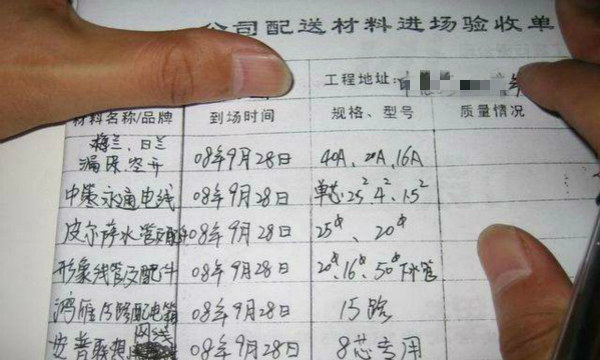 公司配送材料进场验收单
工程地址:
材料名称/品牌 到场时间 规格、型号 质量情况
梅兰、日兰
漏保、空开 08年9月28日 40A、20A、16A
中策永通电线 08年9月28日 单芯 2.5² 4² 1.5²
皮尔萨水管及配件 08年9月28日 25# 、20#
形象线管及配件 08年9月28日 20#、16#、50#下水管
鸿雁15路配电箱 08年9月28日 15路
网线
安普联想 08年9月28日 8芯专用